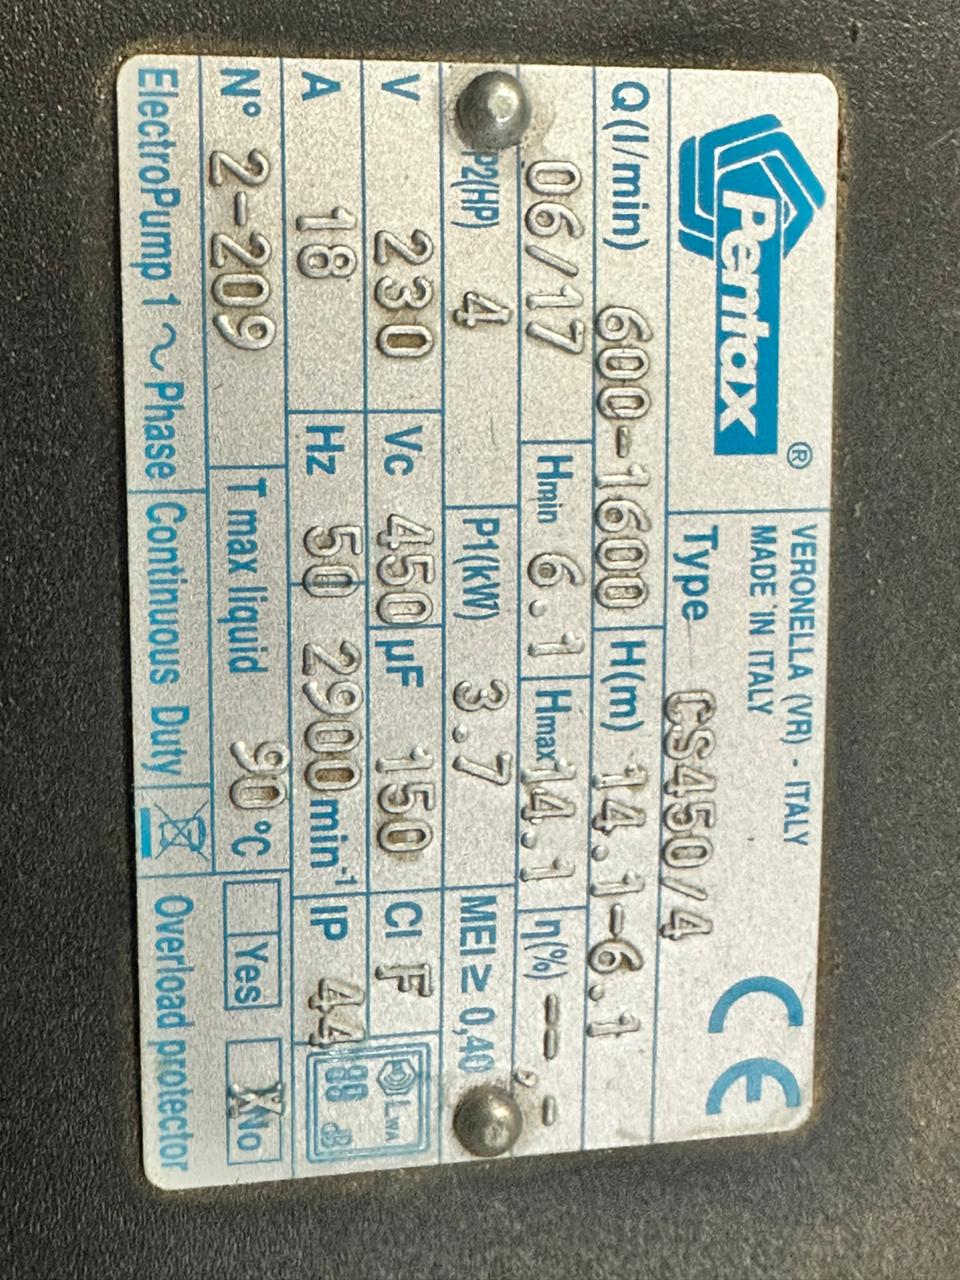 Pentax ®
VERONELLA (VR) - ITALY
MADE IN ITALY
CE
Type CS450/4
Q(l/min) 600-1600 H(m) 14.1-6.1
06/17 Hmin 6.1 Hmax 14.1 η(%) --,-
P2(HP) 4 P1(kW) 3.7 MEI ≥ 0,40
V 230 Vc 450 µF 150 Cl F
A 18 Hz 50 2900 min⁻¹ IP 44
LWA
88 dB
N° 2-209 T max liquid 90 °C Yes X No
ElectroPump 1 ~ Phase Continuous Duty Overload protector